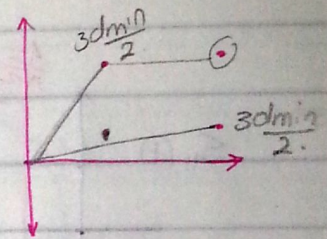 3dmin/2
3dmin/2.